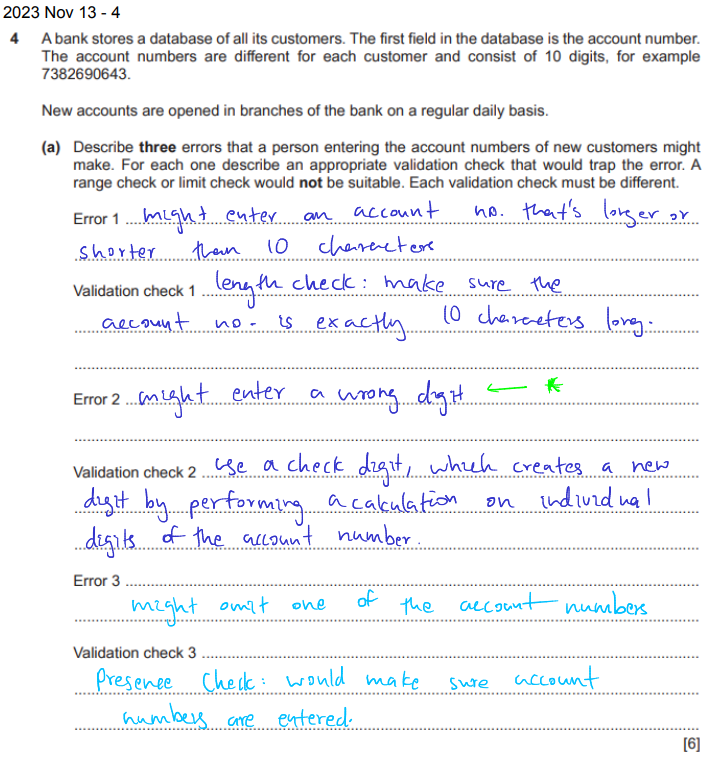 2023 Nov 13 - 4
4 A bank stores a database of all its customers. The first field in the database is the account number.
The account numbers are different for each customer and consist of 10 digits, for example
7382690643.
New accounts are opened in branches of the bank on a regular daily basis.
(a) Describe three errors that a person entering the account numbers of new customers might
make. For each one describe an appropriate validation check that would trap the error. A
range check or limit check would not be suitable. Each validation check must be different.
Error 1 might enter an account no. that's longer or
shorter than 10 characters
Validation check 1 length check: make sure the
account no. is exactly 10 characters long.
Error 2 might enter a wrong digit ← *
Validation check 2 use a check digit, which creates a new
digit by performing a calculation on individual
digits of the account number.
Error 3
might omit one of the account numbers
Validation check 3
Presence Check: would make sure account
numbers are entered.
[6]